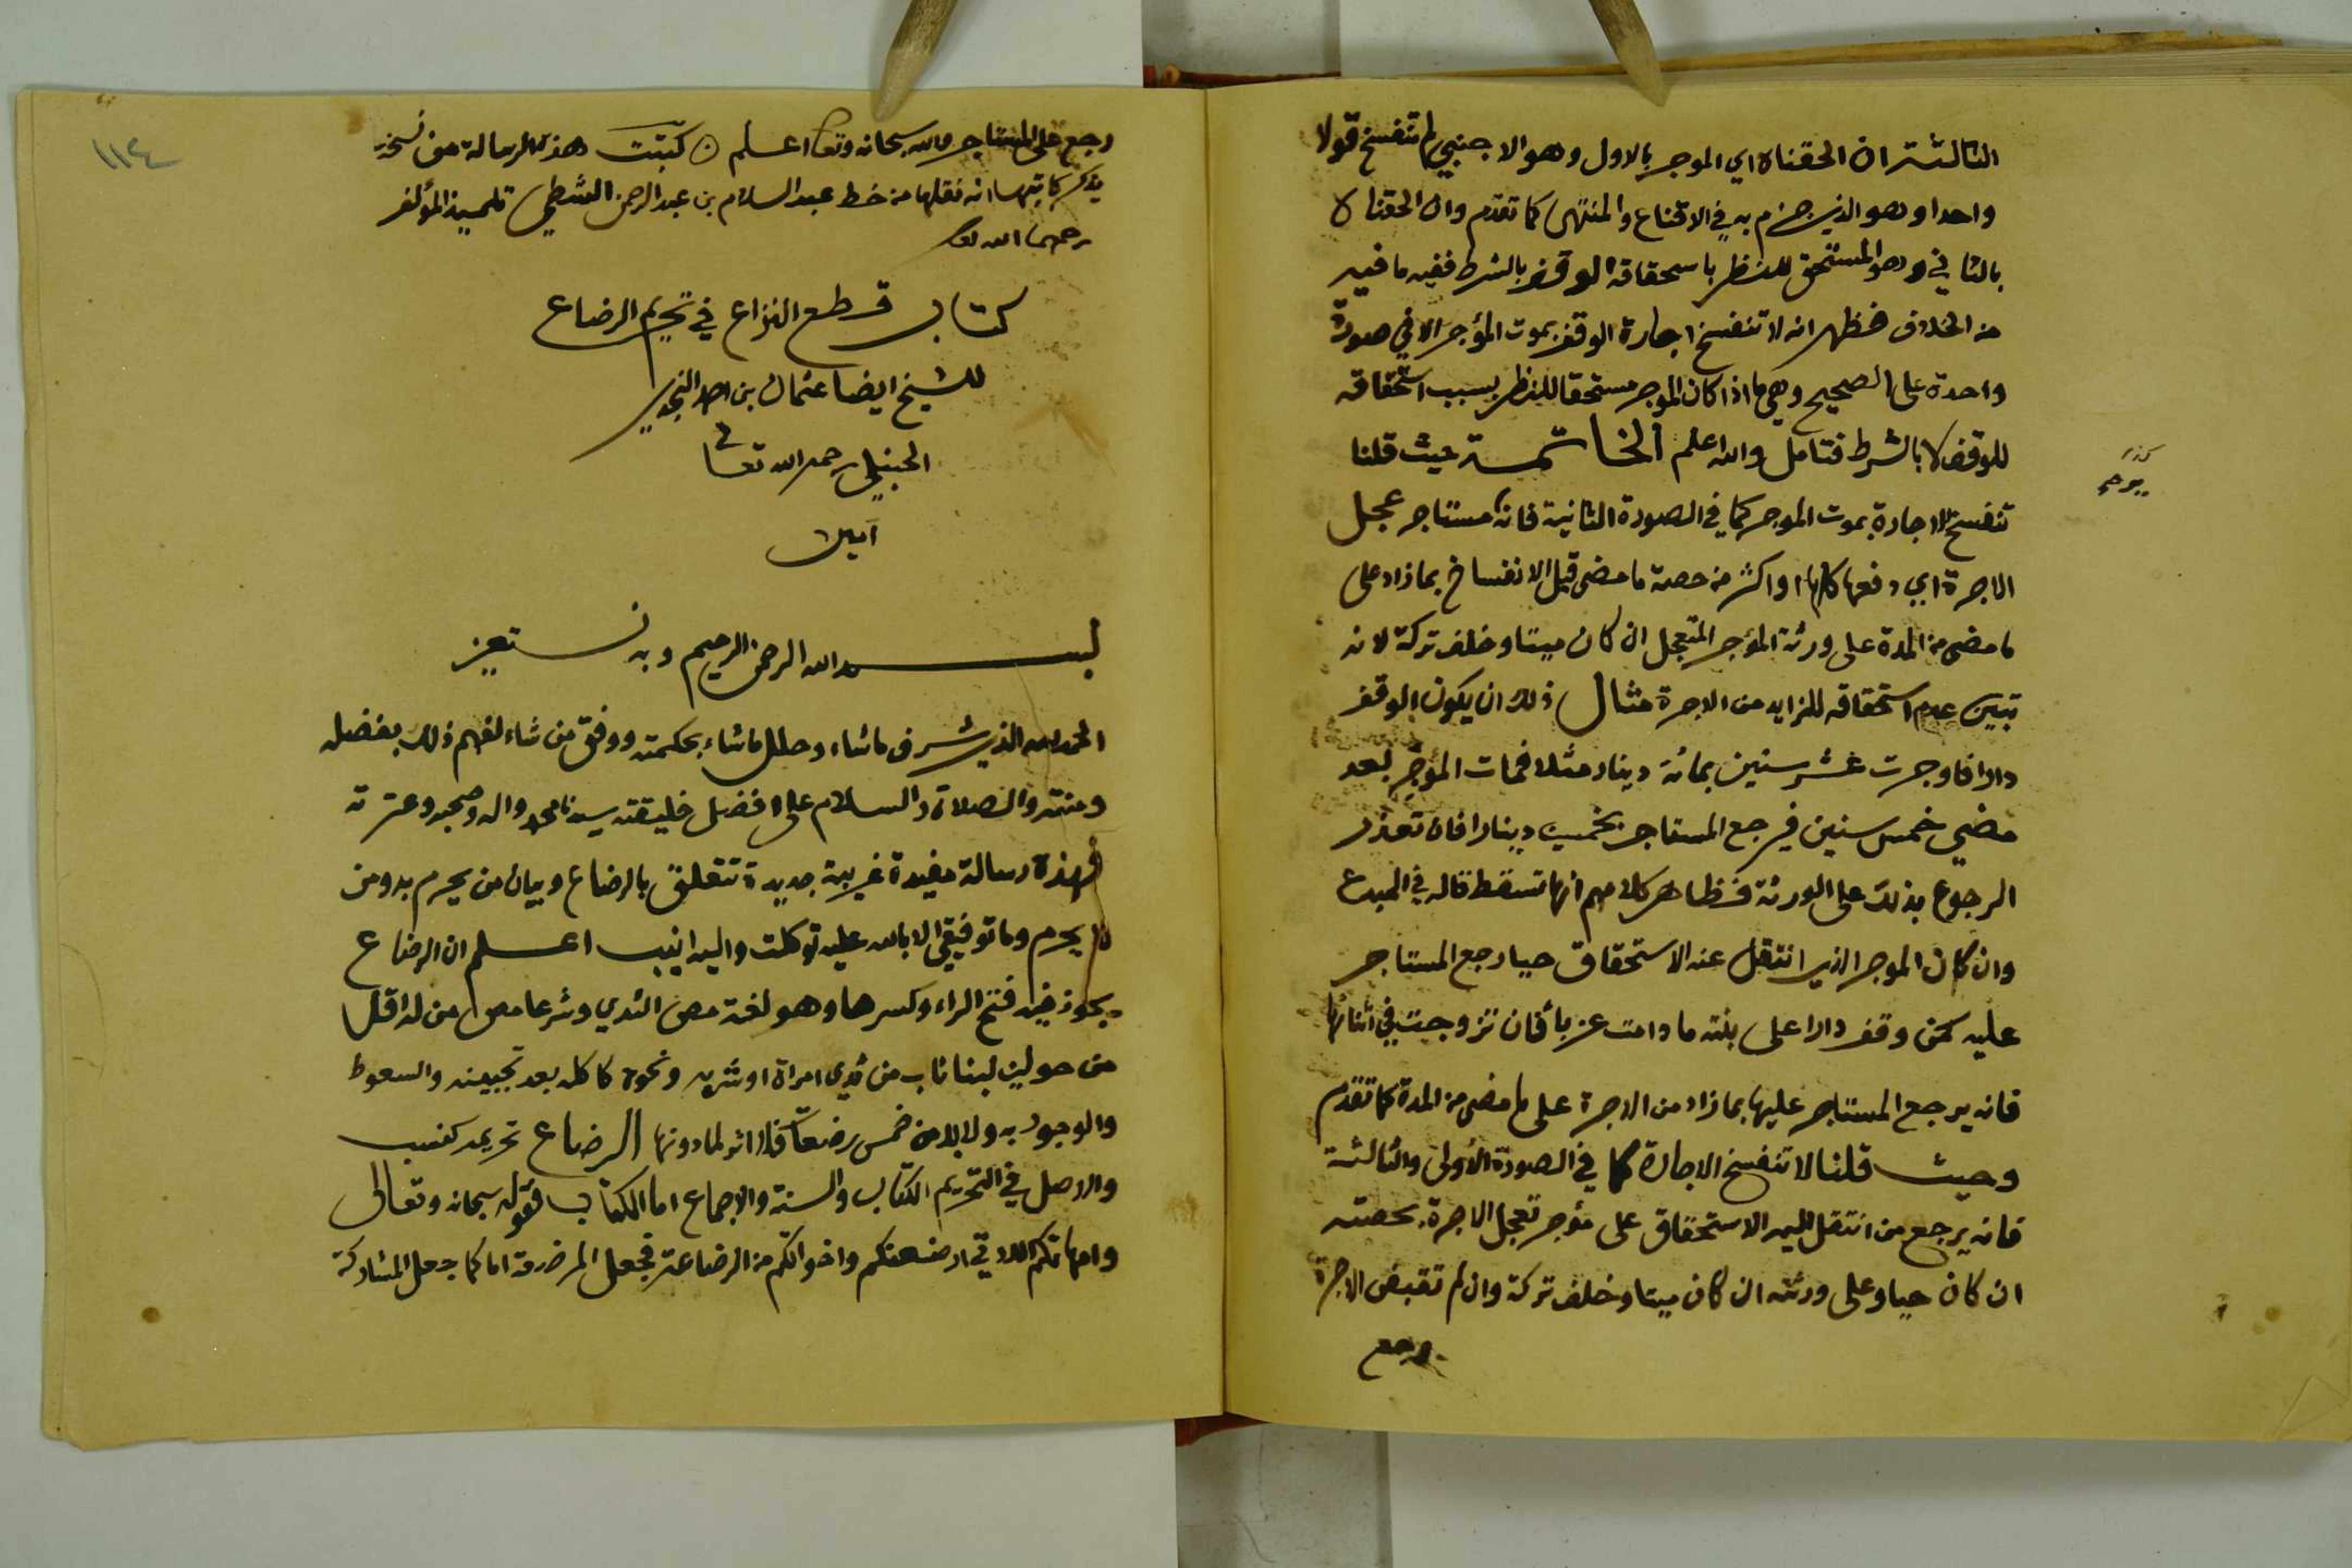 الثالثة ان الحقناه اي الموجر بالاول وهو الاجنبي لم تنفسخ قولا
واحدا وهو الذي جزم به في الاقناع والمنتهى كما تقدم وان الحقناه
بالثاني وهو المستحق للنظر باسحقاقه الوقف بالشرط ففيه ما فيه
من الخلاف فظهر انه لا تنفسخ اجارة الوقف بموت المؤجر الا في صورة
واحدة على الصحيح وهي ما اذا كان الموجر مستحقا للنظر بسبب استحقاقه
للوقف لا بالشرط فتامل والله اعلم الخاتمة حيث قلنا
تنفسخ الاجارة بموت الموجر كما في الصورة الثانية فانه مستاجر عجل
الاجرة اي دفعها كلها او اكثر من حصة ما مضى قبل الانفساخ بما زاد على
ما مضى من المدة على ورثة المؤجر المتعجل ان كان ميتا وخلف تركة لانه
تبين عدم استحقاقه للزايد من الاجرة مثال ذلك ان يكون الوقف
دارا فاوجرت عشر سنين بمائة دينار مثلا فمات المؤجر بعد
مضي خمس سنين فيرجع المستاجر بخمسين دينارا فان تعذر
الرجوع بذلك على الورثة فظاهر كلامهم انها تسقط قاله في المبدع
وان كان الموجر الذي انتقل عنه الاستحقاق حيا رجع المستاجر
عليه كمن وقف دارا على بنته ما دامت عزبا فان تزوجت في اثنائها
فانه يرجع المستاجر عليها بما زاد من الاجرة على ما مضى من المدة كما تقدم
وحيث قلنا لا تنفسخ الاجارة كما في الصورة الأولى والثالثة
فانه يرجع من انتقل اليه الاستحقاق على مؤجر تعجل الاجرة بحصته
ان كان حيا وعلى ورثته ان كان ميتا وخلف تركة وان لم تقبض الاجرة
رجع
كذا
١١٤
رجع على المستاجر والله سبحانه وتعا اعلم ٥ كتبت هذه الرسالة من نسخة
يذكر كاتبها انه نقلها من خط عبد السلام بن عبد الرحمن الشطي تلميذ المؤلف
رحمهما الله تعا
كتاب قطع النزاع في تحريم الرضاع
للشيخ ايضا عثمان بن احمد النجدي
الحنبلي رحمه الله تعالى
آمين
بسم الله الرحمن الرحيم وبه نستعين
الحمد لله الذي شرف ما شاء وحلل ما شاء بحكمته ووفق من شاء لفهم ذلك بفضله
ومنته والصلاة والسلام على افضل خليقته سيدنا محمد واله وصحبه وعترته
فهذه رسالة مفيدة غريبة جديدة تتعلق بالرضاع وبيان من يحرم به ومن
لا يحرم وما توفيقي الا بالله عليه توكلت واليه انيب اعلم ان الرضاع
يجوز فيه فتح الراء وكسرها وهو لغة مص الثدي وشرعا مص من له اقل
من حولين لبنا ثاب من ثدي امراة او شربه ونحوه كاكله بعد تجبينه والسعوط
والوجور به ولا بد من خمس رضعات فلا اثر لما دونها الرضاع تحريمه كنسب
والاصل في التحريم الكتاب والسنة والاجماع اما الكتاب فقوله سبحانه وتعالى
وامهاتكم اللاتي ارضعنكم واخواتكم من الرضاعة فجعل المرضعة اما كما جعل المشاركة